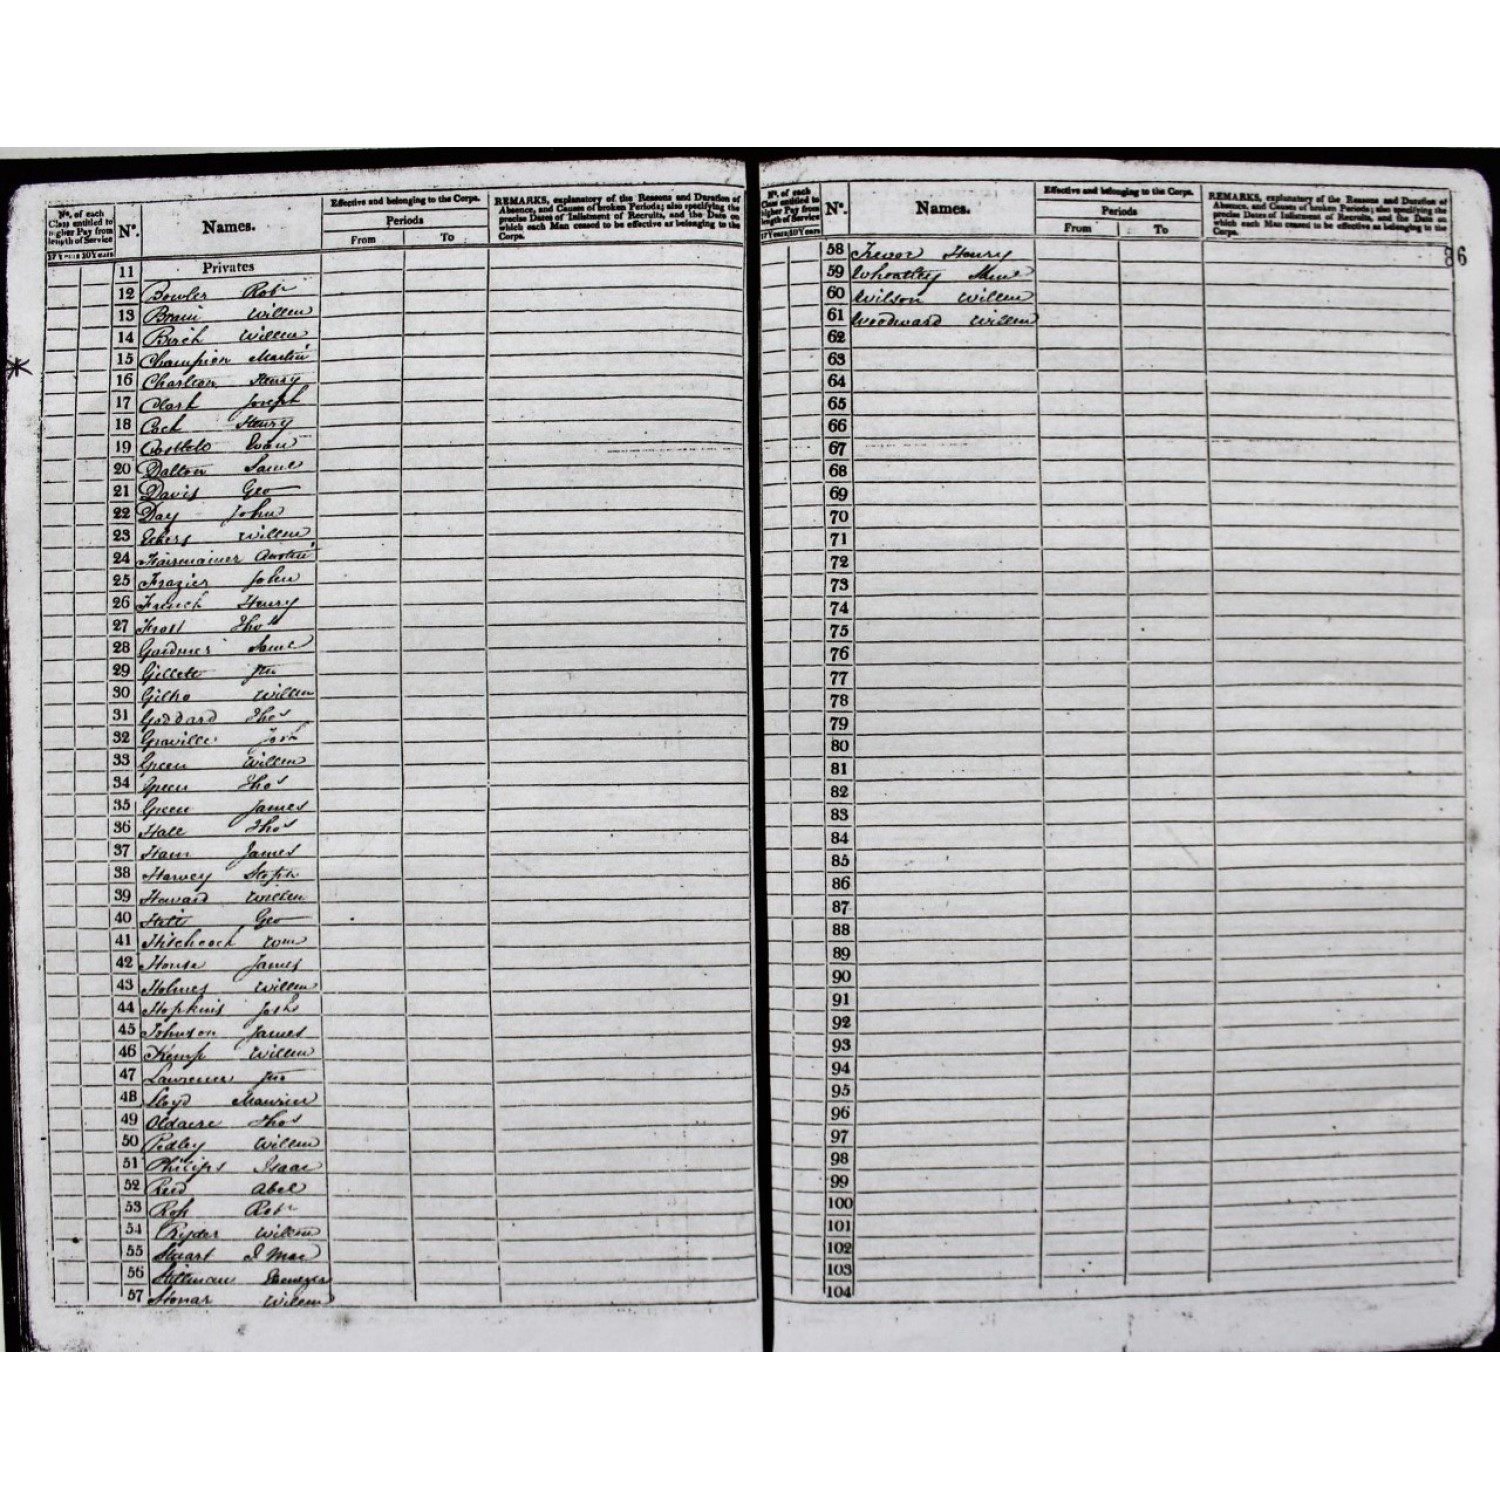 Nº. of each Class entitled to higher Pay from length of Service
17 Years 20 Years
Nº.
Names.
Effective and belonging to the Corps.
Periods
From To
REMARKS, explanatory of the Reasons and Duration of Absence, and Causes of broken Periods; also specifying the precise Dates of Inlistment of Recruits, and the Date on which each Man ceased to be effective as belonging to the Corps.
11 Privates
12 Bowler Robt
13 Brain Willm
14 Birch Willm
15 Champion Martin
16 Charlton Henry
17 Clark Joseph
18 Cock Henry
19 Costello Evan
20 Dalton Saml
21 Davis Geo
22 Day John
23 Willm
24
25 Frazier John
26 French Henry
27 Frost Thos
28 Gardner Saml
29 Gillett Jno
30 Gilks Willm
31 Goddard Thos
32 Graville Josh
33 Green Willm
34 Green Thos
35 Green James
36 Hale Thos
37 Ham James
38 Harvey Steph
39 Howard Willm
40 Geo
41 Hitchcock Wm
42 House James
43 Holmes Willm
44 Hopkins
45 Johnson James
46 Kemp Willm
47 Lawrence Jno
48 Lloyd Maurice
49 Oldacre Thos
50 Pedley Willm
51 Philips Isaac
52 Reed Abel
53 Robt
54 Ryder Willm
55 Stuart J Mac
56 Stillman Ebenezer
57 Stonar Willm
Nº. of each Class entitled to higher Pay from length of Service
17 Years 20 Years
Nº.
Names.
Effective and belonging to the Corps.
Periods
From To
REMARKS, explanatory of the Reasons and Duration of Absence, and Causes of broken Periods; also specifying the precise Dates of Inlistment of Recruits, and the Date on which each Man ceased to be effective as belonging to the Corps.
86
58 Trevor Henry
59 Wheatley
60 Wilson Willm
61 Woodward Willm
62
63
64
65
66
67
68
69
70
71
72
73
74
75
76
77
78
79
80
81
82
83
84
85
86
87
88
89
90
91
92
93
94
95
96
97
98
99
100
101
102
103
104